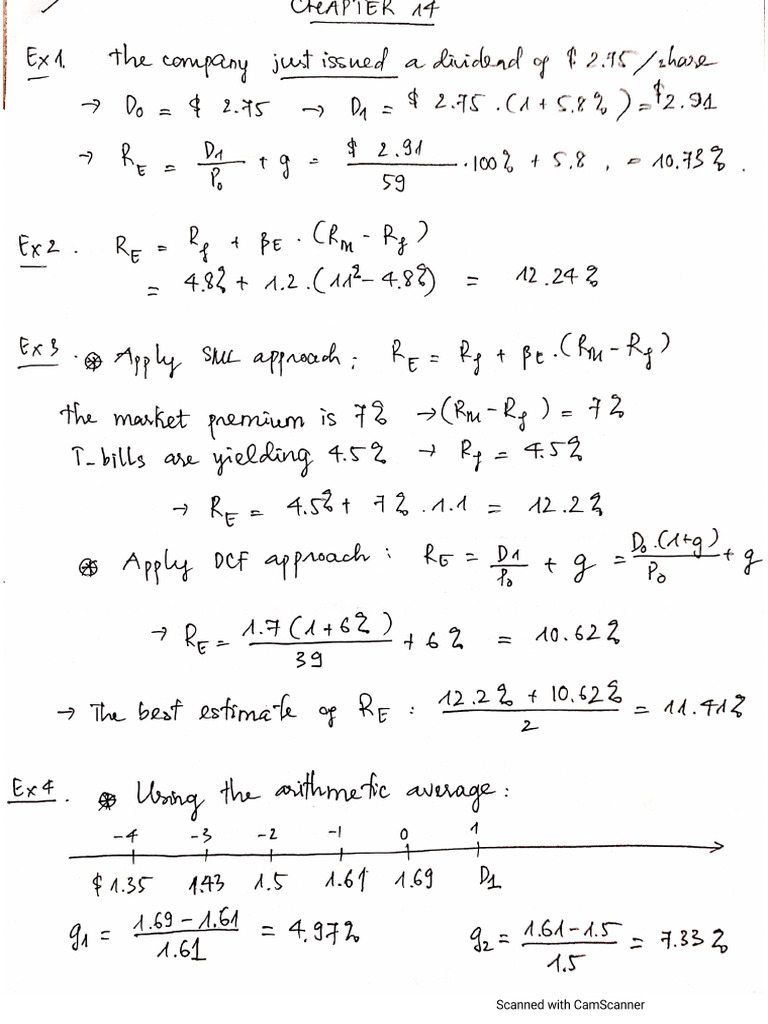 CHAPTER 14
Ex1. the company just issued a dividend of $ 2.75 / share
→ D₀ = $ 2.75 → D₁ = $ 2.75 . (1 + 5.8%) = $2.91
→ R_E = D₁/P₀ + g = $ 2.91/59 . 100% + 5.8 , = 10.73% .
Ex2. R_E = R_f + β_E . (R_m - R_f)
= 4.8% + 1.2 . (11% - 4.8%) = 12.24%
Ex3. ⊛ Apply SML approach : R_E = R_f + β_E . (R_M - R_f)
the market premium is 7% → (R_m - R_f) = 7%
T-bills are yielding 4.5% → R_f = 4.5%
→ R_E = 4.5% + 7% . 1.1 = 12.2%
⊛ Apply DCF approach : R_E = D₁/P₀ + g = D₀.(1+g)/P₀ + g
→ R_E = 1.7(1+6%)/39 + 6% = 10.62%
→ The best estimate of R_E : (12.2% + 10.62%)/2 = 11.41%
Ex4. ⊛ Using the arithmetic average :
-4 -3 -2 -1 0 1
$ 1.35 1.43 1.5 1.61 1.69 D₁
g₁ = (1.69 - 1.61)/1.61 = 4.97% g₂ = (1.61 - 1.5)/1.5 = 7.33%
Scanned with CamScanner